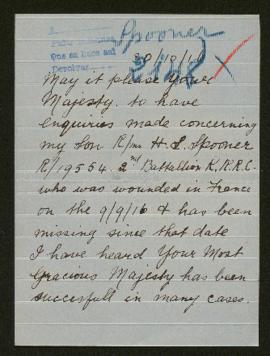 Spooner
28/10/1
May it please Your
Majesty. to have
enquiries made concerning
my Son R/mn H. S. Spooner
R/19554. 2nd Battalion K.R.R.C.
who was wounded in France
on the 9/9/16 & has been
missing since that date
I have heard Your Most
Gracious Majesty has been
successfull in many cases.